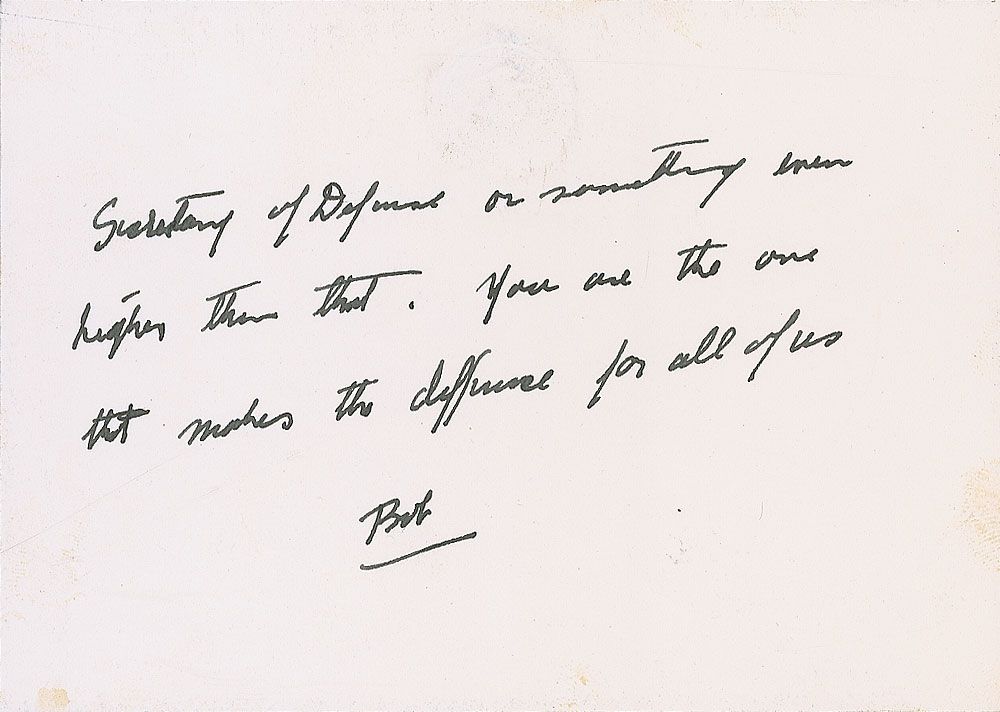 Secretary of Defense or something even
higher than that. You are the one
that makes the difference for all of us
Bob